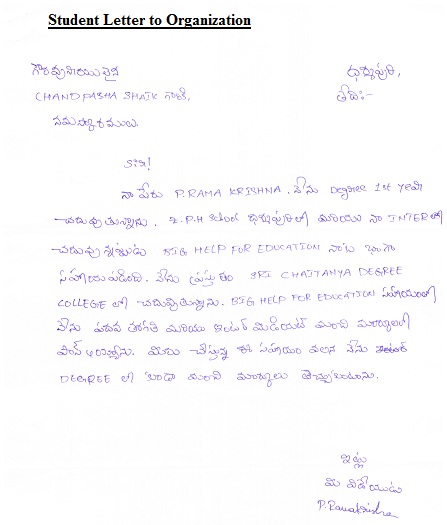 Student Letter to Organization
గౌరవనీయులైన ధర్మపురి,
CHAND PASHA SHAIK గారికి, తేది:-
నమస్కారములు.
సార్!
నా పేరు P.RAMA KRISHNA. నేను Degree 1st year
చదువుతున్నాను. Z.P.H School ధర్మపురిలో మరియు నా INTER లో
చదువుతున్నప్పుడు BIG HELP FOR EDUCATION నాకు బాగా
సహాయపడింది. నేను ప్రస్తుతం SRI CHAITANYA DEGREE
COLLEGE లో చదువుతున్నాను. BIG HELP FOR EDUCATION సహాయంతో
నేను పదవ తరగతి మరియు ఇంటర్ మీడియట్ మంచి మార్కులతో
పాస్ అయ్యాను. మీరు చేస్తున్న ఈ సహాయం వలన నేను
DEGREE లో కూడా మంచి మార్కులు తెచ్చుకుంటాను.
ఇట్లు
మీ విధేయుడు
P.Ramakrishna